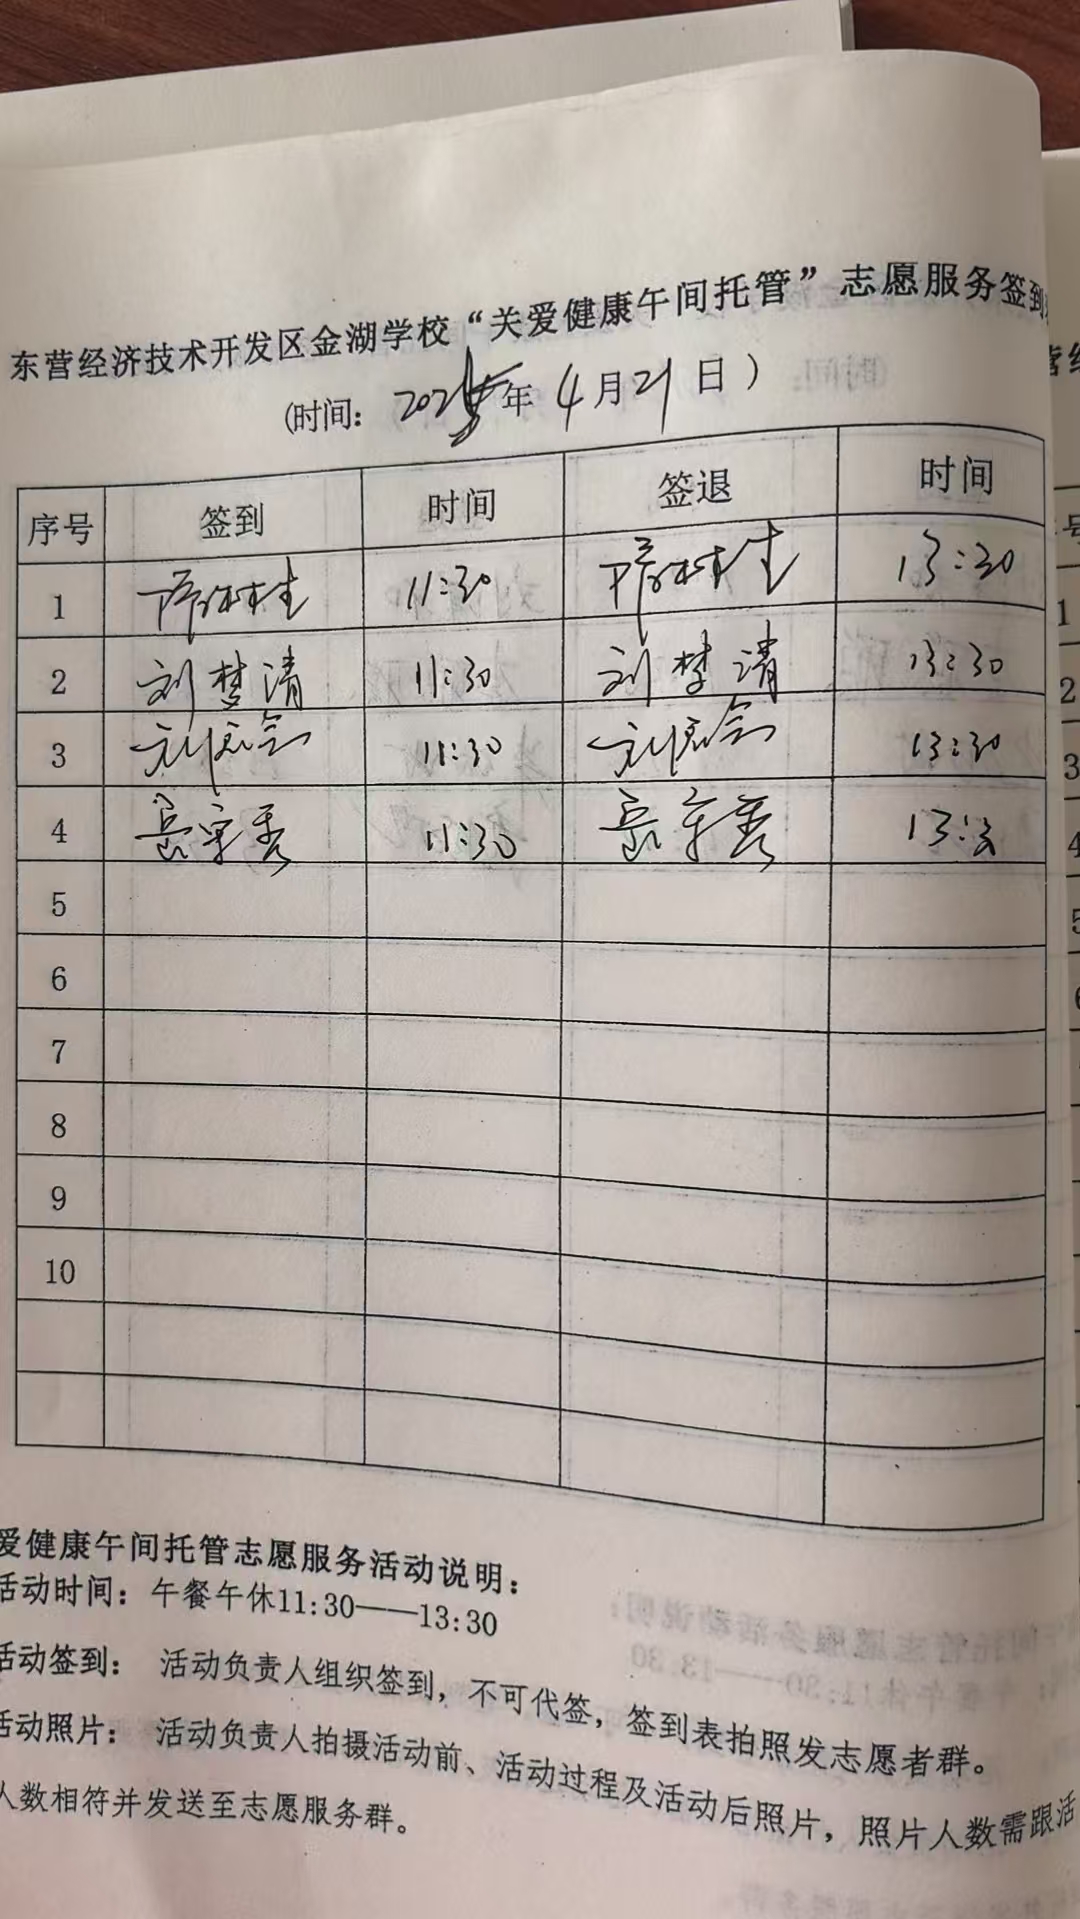 东营经济技术开发区金湖学校“关爱健康午间托管”志愿服务签到
(时间: 2025年4月21日)
序号 签到 时间 签退 时间
1 11:30 13:30
2 刘梦清 11:30 刘梦清 13:30
3 11:30 13:30
4 岳宗秀 11:30 岳宗秀 13:30
5
6
7
8
9
10
爱健康午间托管志愿服务活动说明:
活动时间: 午餐午休11:30——13:30
活动签到: 活动负责人组织签到, 不可代签, 签到表拍照发志愿者群。
活动照片: 活动负责人拍摄活动前、活动过程及活动后照片, 照片人数需跟活
人数相符并发送至志愿服务群。